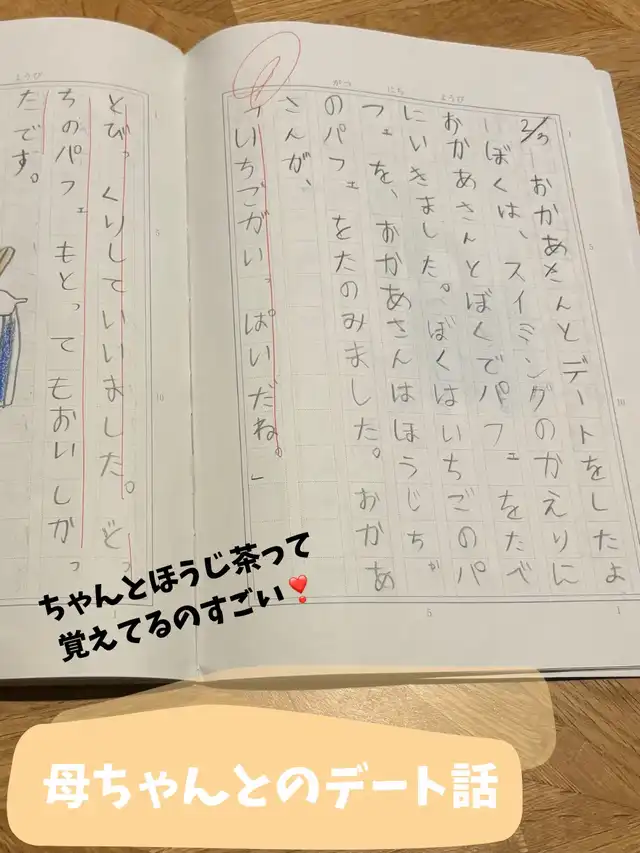 がつ にち ようび
おかあさんとデートをしたよ
ぼくは、スイミングのかえりに
おかあさんとぼくでパフェをたべ
にいきました。ぼくはいちごのパ
フェを、おかあさんはほうじちゃ
のパフェをたのみました。おかあ
さんが、
「いちごがいっぱいだね。」
ようび
とびっくりしていいました。どっ
ちのパフェもとってもおいしかっ
たです。
ちゃんとほうじ茶って
覚えてるのすごい❣️
母ちゃんとのデート話